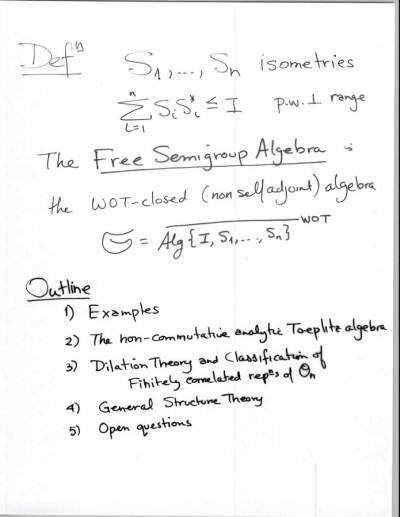 Defⁿ S₁,..., Sₙ isometries
n
∑ SᵢSᵢ* ≤ I p.w. ⊥ range
i=1
The Free Semigroup Algebra is
the WOT-closed (non selfadjoint) algebra
𝔖 = Alg{I, S₁,..., Sₙ} WOT
Outline
1) Examples
2) The non-commutative analytic Toeplitz algebra
3) Dilation Theory and Classification of
Finitely correlated repⁿs of Oₙ
4) General Structure Theory
5) Open questions